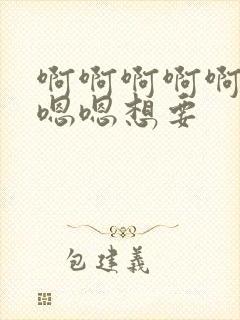 啊啊啊啊啊
嗯嗯想要
包建义